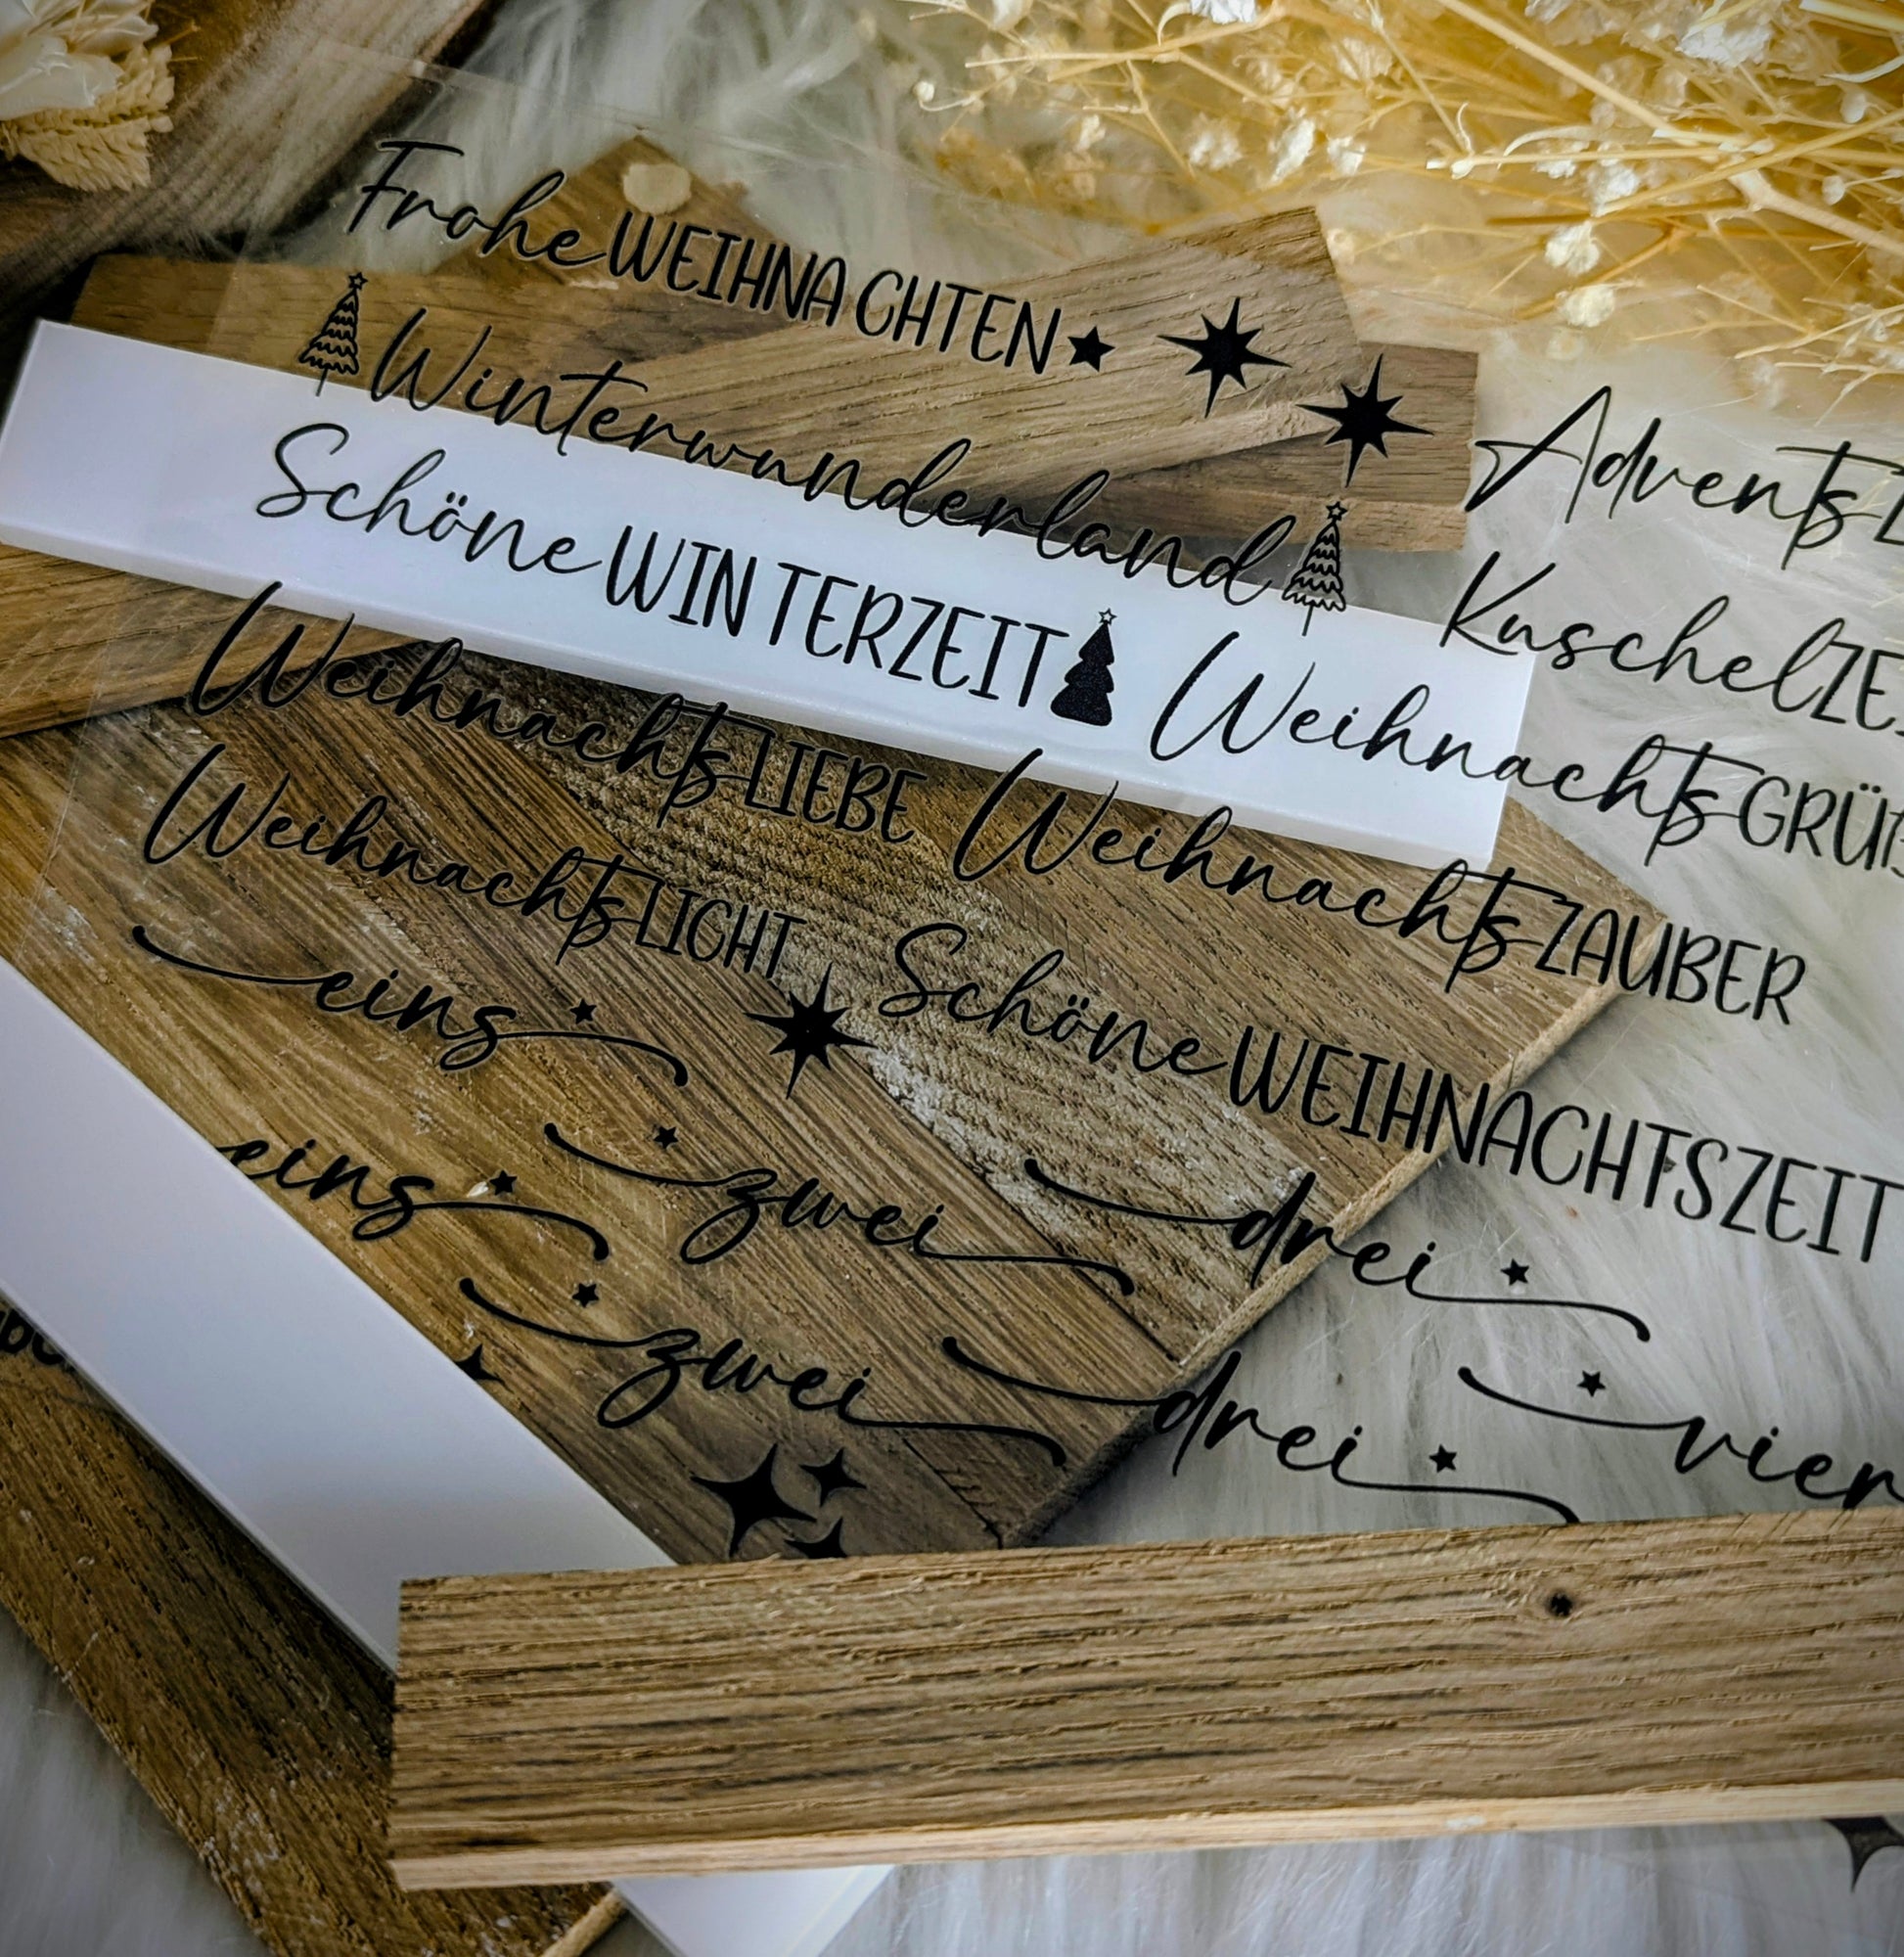 Frohe WEIHNACHTEN
Winterwunderland
Advents
Schöne WINTERZEIT
KuschelZE
WeihnachtsLIEBE
WeihnachtsGRÜ
WeihnachtsLICHT
WeihnachtsZAUBER
eins
Schöne WEIHNACHTSZEIT
eins zwei drei
zwei drei vier